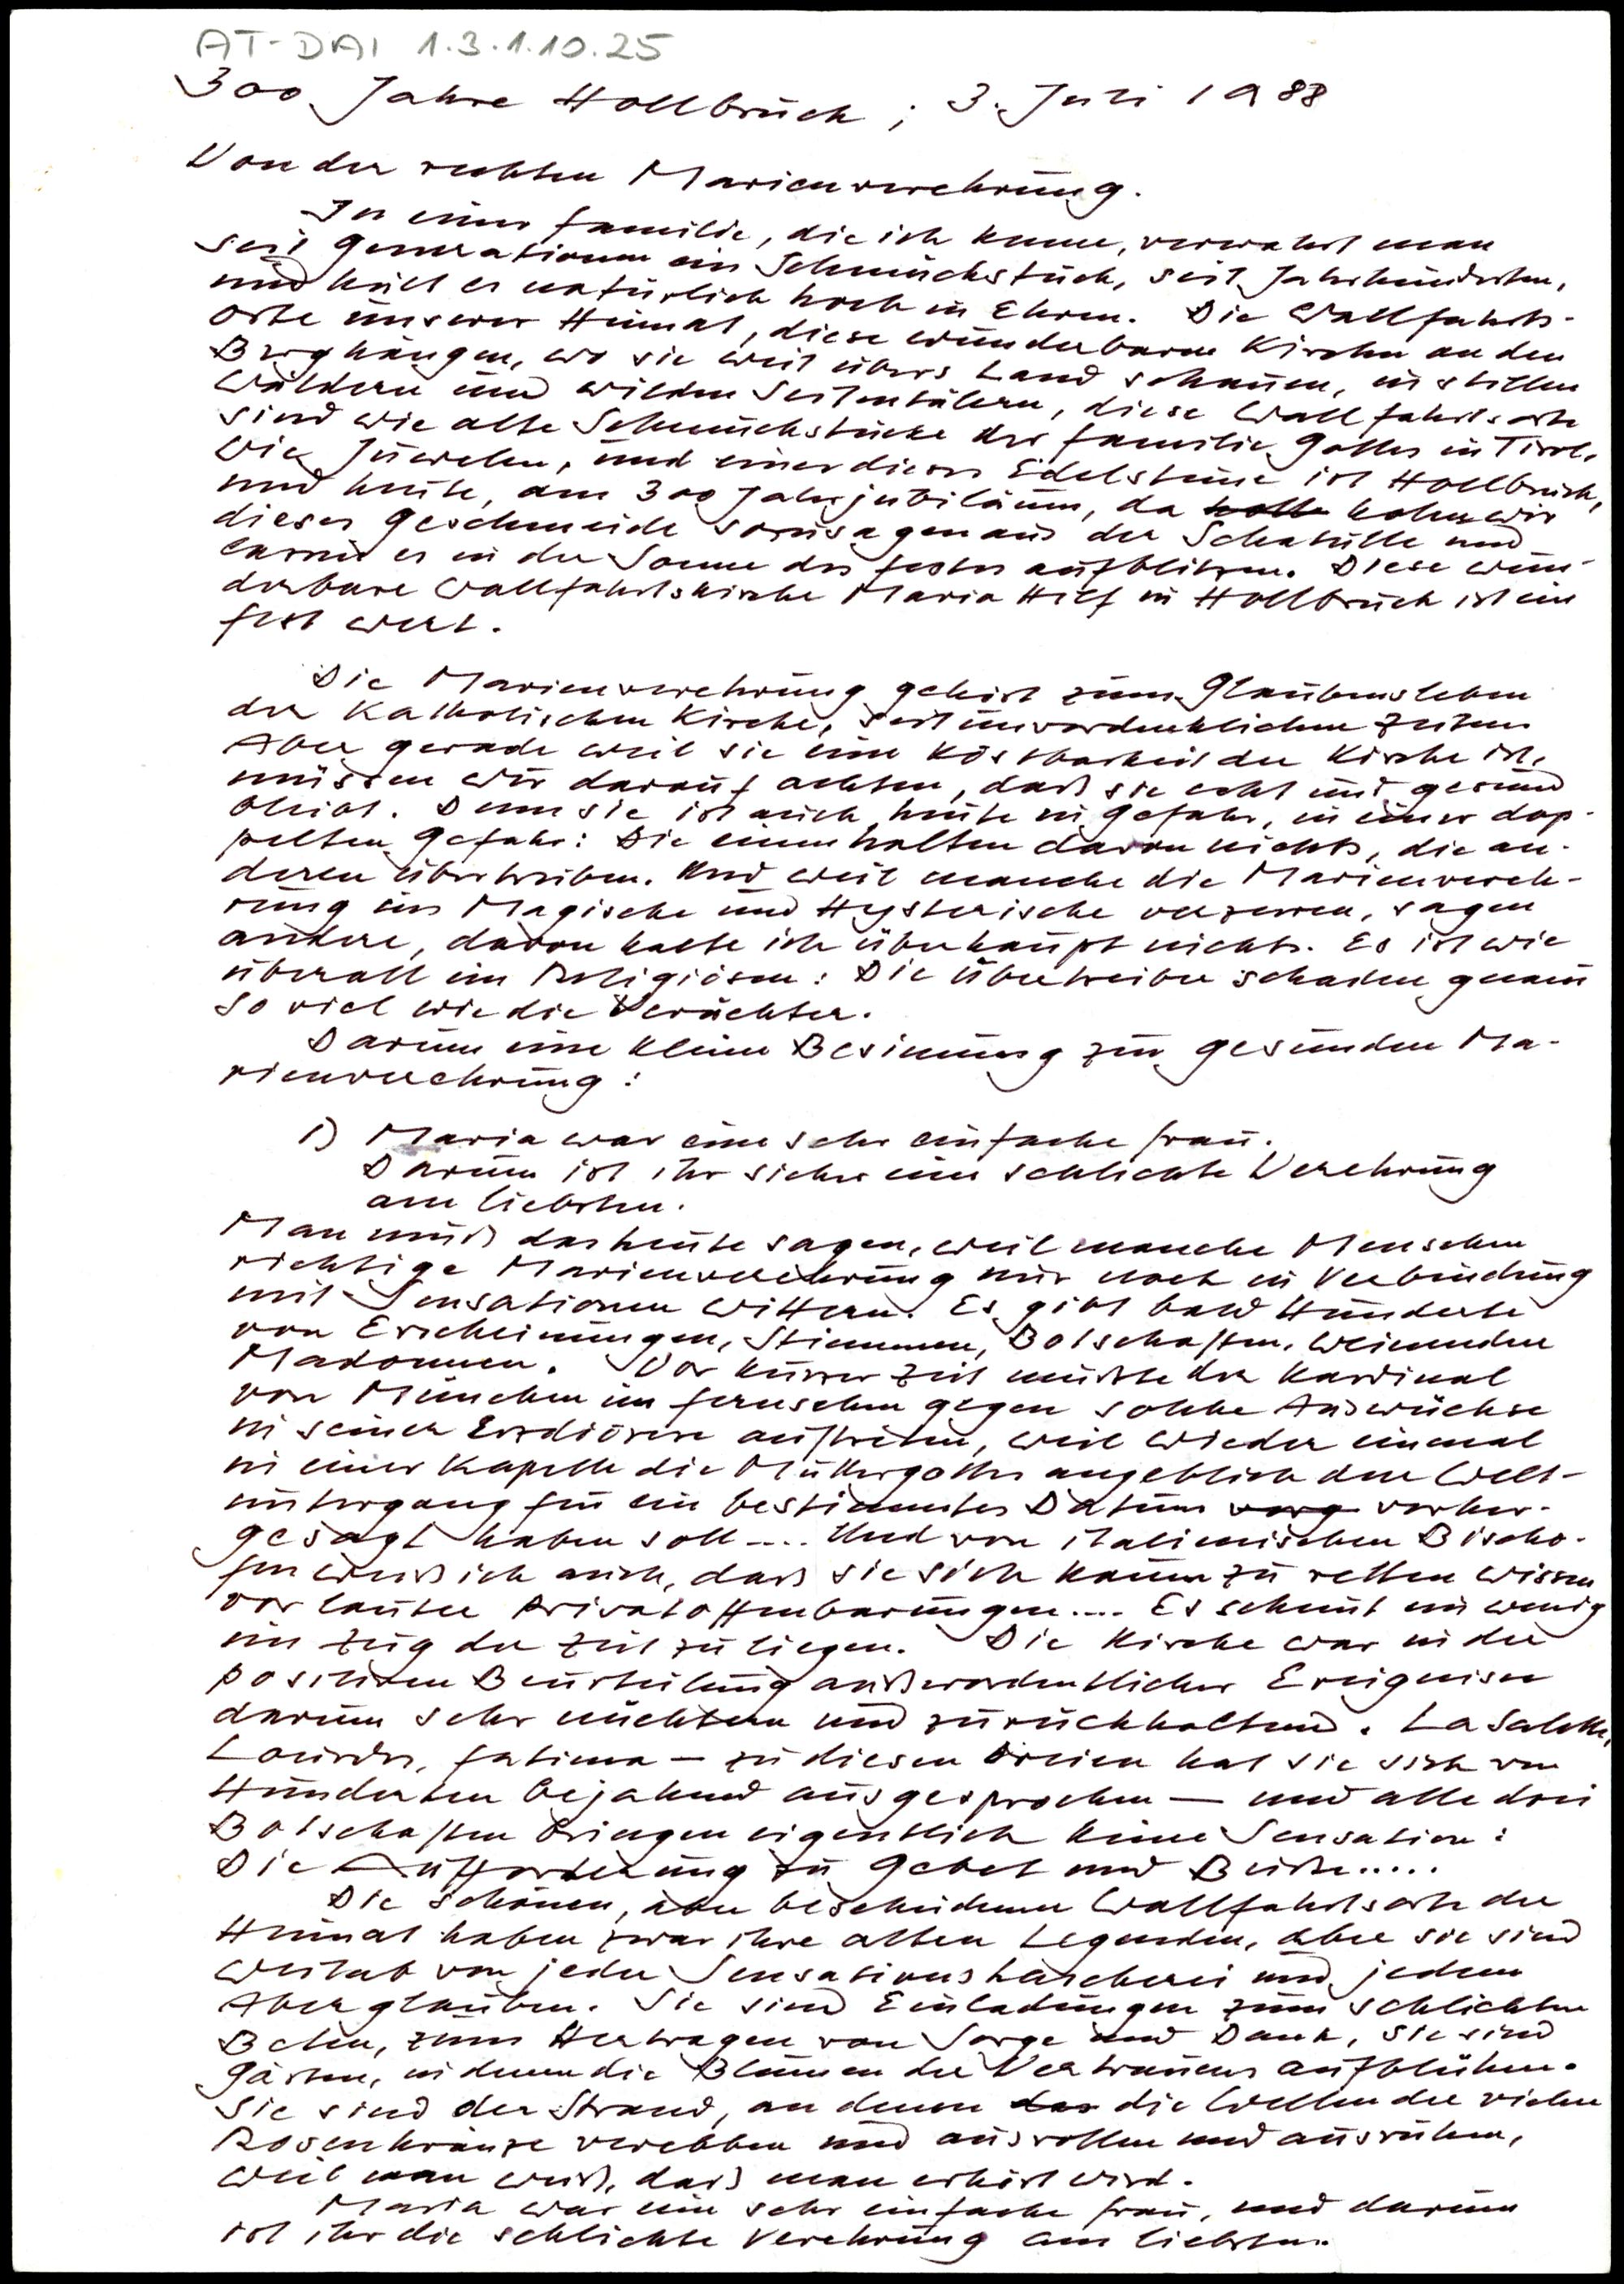 AT-DAI 1.3.1.10.25
300 Jahre Hollbruck; 3. Juli 1988
Von der rechten Marienverehrung.
In einer Familie, die ich kenne, verwahrt man
seit Generationen ein Schmuckstück, seit Jahrhunderten,
und hält es natürlich hoch in Ehren. Die Wallfahrts-
orte unserer Heimat, diese wunderbaren Kirchen an den
Berghängen, wo sie weit übers Land schauen, in stillen
Wäldern und wilden Seitentälern, diese Wallfahrtsorte
sind wie alte Schmuckstücke der Familie Gottes in Tirol,
wie Juwelen, und einer dieser Edelsteine ist Hollbruck,
und heute, am 300 Jahrjubiläum, da holte holen wir
dieses Geschmeide sozusagen aus der Schatulle und
lassen es in der Sonne des Festes aufblitzen. Diese wun-
derbare Wallfahrtskirche Maria Hilf in Hollbruck ist ein
Fest wert.
Die Marienverehrung gehört zum Glaubensleben
der Katholischen Kirche, seit unvordenklichen Zeiten
Aber gerade weil sie eine Kostbarkeit der Kirche ist,
müssen wir darauf achten, daß sie echt und gesund
bleibt. Denn sie ist auch heute in Gefahr, in einer dop-
pelten Gefahr: Die einen halten davon nichts, die an-
deren übertreiben. Und weil manche die Marienvereh-
rung ins Magische und Hysterische verzerren, sagen
andere, davon halte ich überhaupt nichts. Es ist wie
überall im Religiösen: Die Übertreiber schaden genau
so viel wie die Verächter.
Darum eine kleine Besinnung zur gesunden Ma-
rienverehrung:
1) Maria war eine sehr einfache Frau.
Darum ist ihr sicher eine schlichte Verehrung
am liebsten.
Man muß das heute sagen, weil manche Menschen
richtige Marienverehrung nur noch in Verbindung
mit Sensationen wittern. Es gibt bald Hunderte
von Erscheinungen, Stimmen, Botschaften, weinenden
Madonnen. Vor kurzer Zeit mußte der Kardinal
von München im Fernsehen gegen solche Auswüchse
in seiner Erzdiözese auftreten, weil wieder einmal
in einer Kapelle die Muttergottes angeblich den Welt-
untergang für ein bestimmtes Datum vorg vorher-
gesagt haben soll.... Und von italienischen Bischö-
fen weiß ich auch, daß sie sich kaum zu retten wissen
vor lauter Privatoffenbarungen.... Es scheint ein wenig
im Zug der Zeit zu liegen. Die Kirche war in der
positiven Beurteilung außerordentlicher Ereignisse
darum sehr nüchtern und zurückhaltend. La Salette,
Lourdes, Fatima — zu diesen dreien hat sie sich von
Hunderten bejahend ausgesprochen — und alle drei
Botschaften bringen eigentlich keine Sensation:
Die Aufforderung zu Gebet und Buße.....
Die schönen, aber bescheidenen Wallfahrtsorte der
Heimat haben zwar ihre alten Legenden, aber sie sind
weitab von jeder Sensationshascherei und jedem
Aberglauben. Sie sind Einladungen zum schlichten
Beten, zum Hertragen von Sorge und Dank, sie sind
Gärten, in denen die Blumen des Vertrauens aufblühen.
Sie sind der Strand, an denen das die Wellen der vielen
Rosenkränze verebben und ausrollen und ausruhen,
weil man weiß, daß man erhört wird.
Maria war eine sehr einfache Frau, und darum
ist ihr die schlichte Verehrung am liebsten.